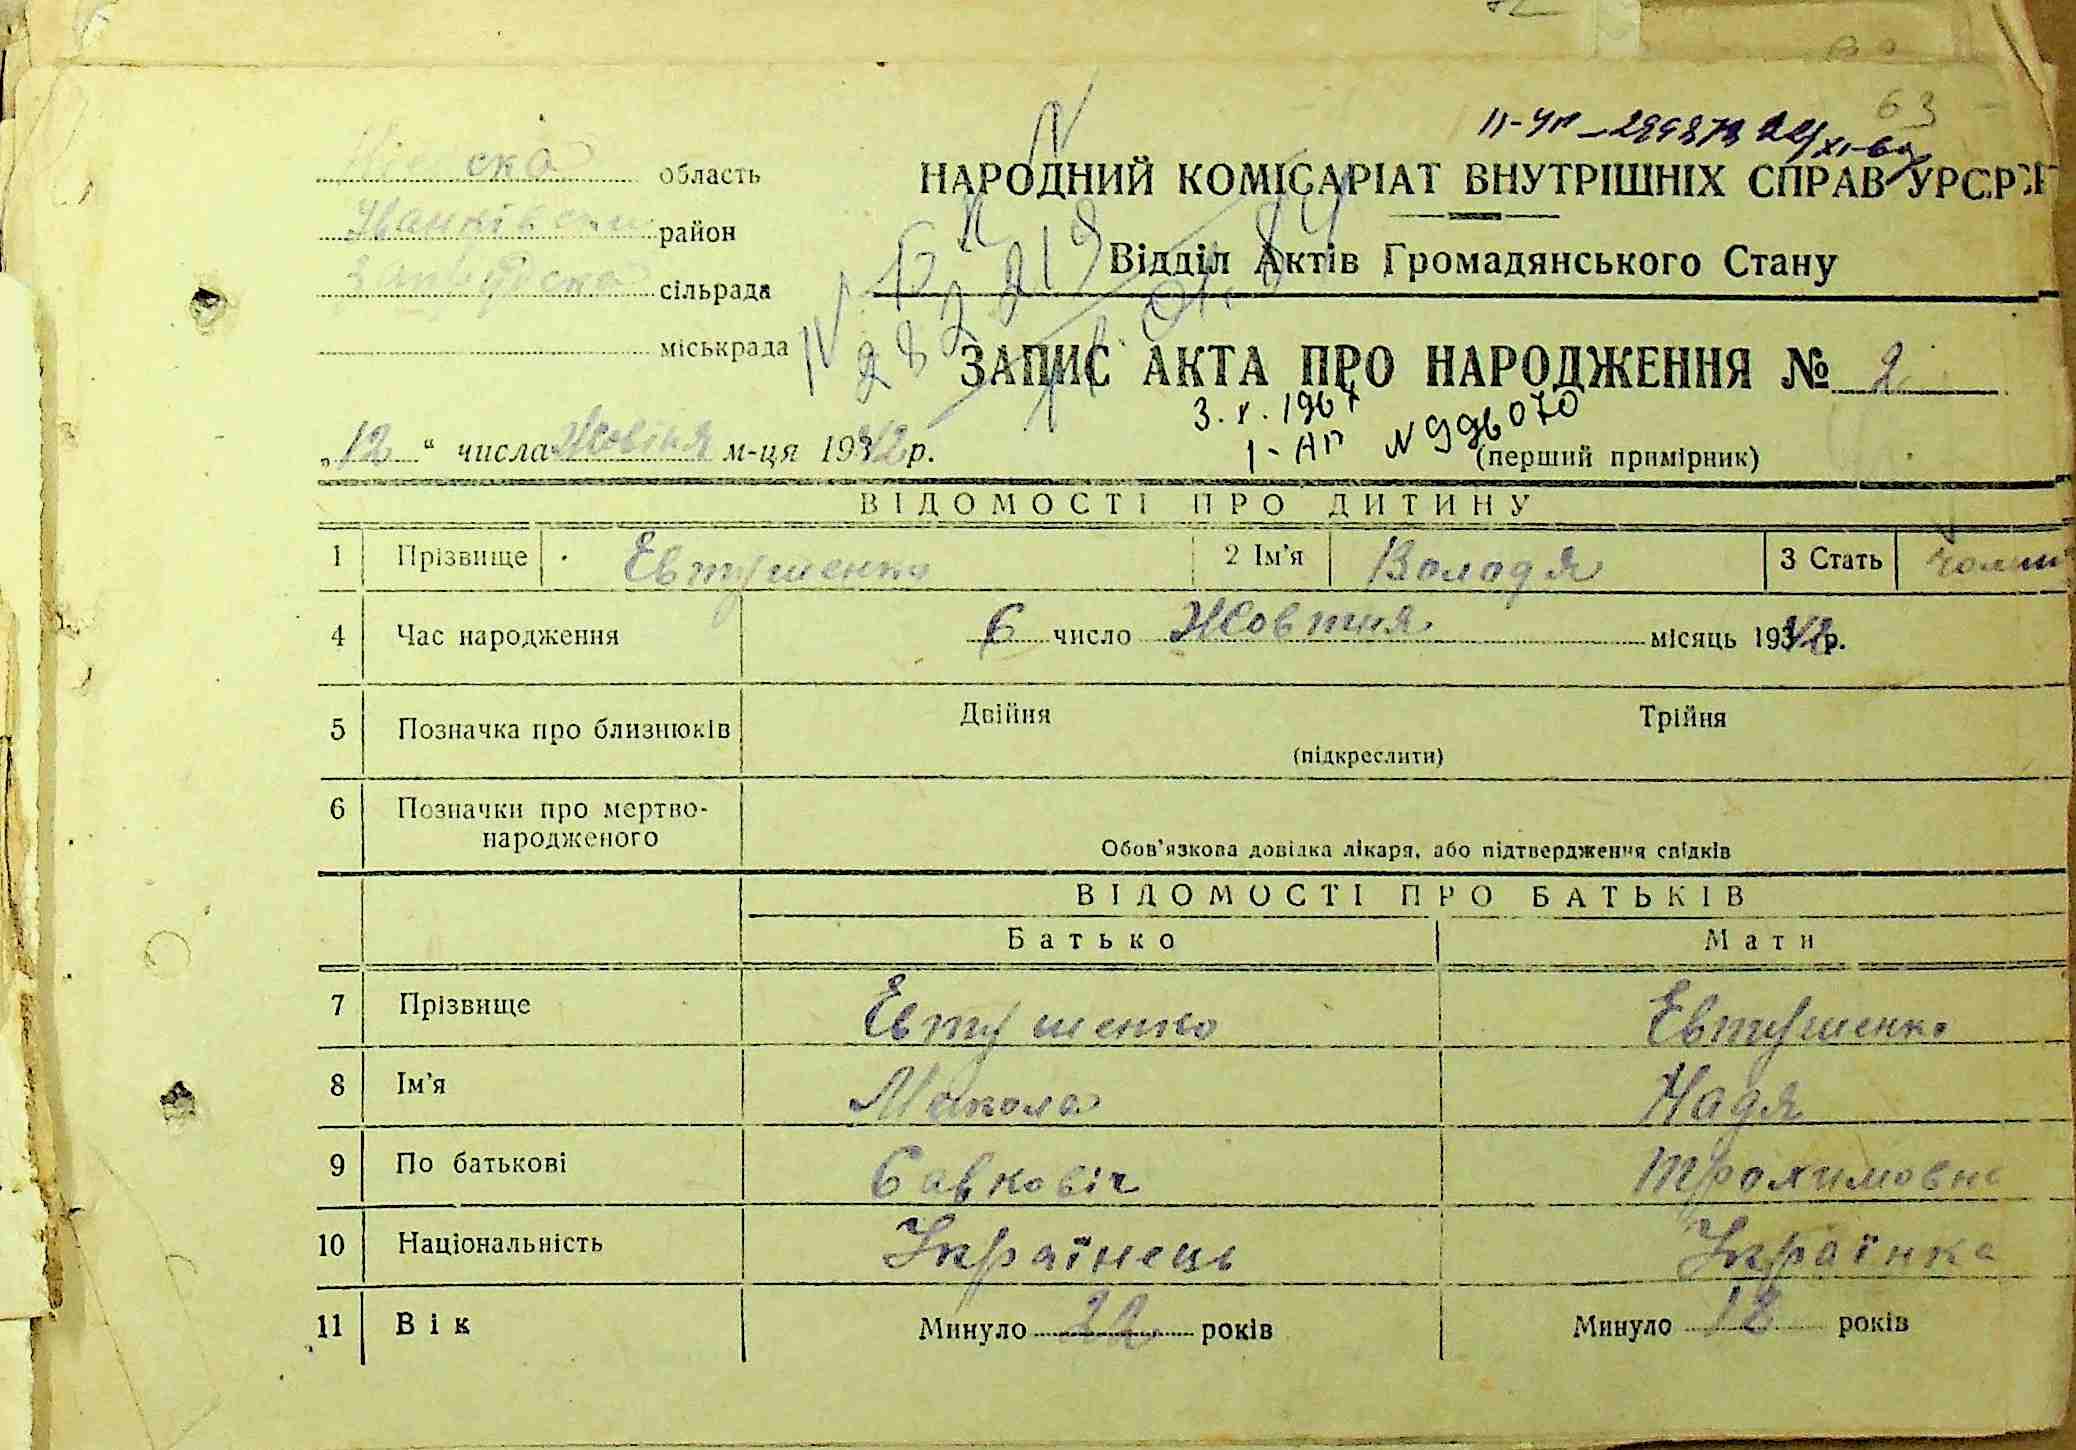 63
II-УП - 299873 22/XI-60
Київска область
НАРОДНИЙ КОМІСАРІАТ ВНУТРІШНІХ СПРАВ УРСР
Іванківский район
Відділ Актів Громадянського Стану
сільрада
міськрада
ЗАПИС АКТА ПРО НАРОДЖЕННЯ № 2
3.X.1961
I-АП N 996070
„12“ числа Жовтня м-ця 1942 р.
(перший примірник)
ВІДОМОСТІ ПРО ДИТИНУ
1 Прізвище Евтушенко 2 Ім'я Володя 3 Стать
4 Час народження 6 число Жовтня місяць 1942 р.
5 Позначка про близнюків Двійня Трійня
(підкреслити)
6 Позначки про мертво-
народженого
Обов'язкова довідка лікаря, або підтвердження свідків
ВІДОМОСТІ ПРО БАТЬКІВ
Батько Мати
7 Прізвище Евтушенко Евтушенко
8 Ім'я Микола Надя
9 По батькові Савковіч Трохимовна
10 Національність Українець Українка
11 Вік Минуло 22 років Минуло 18 років